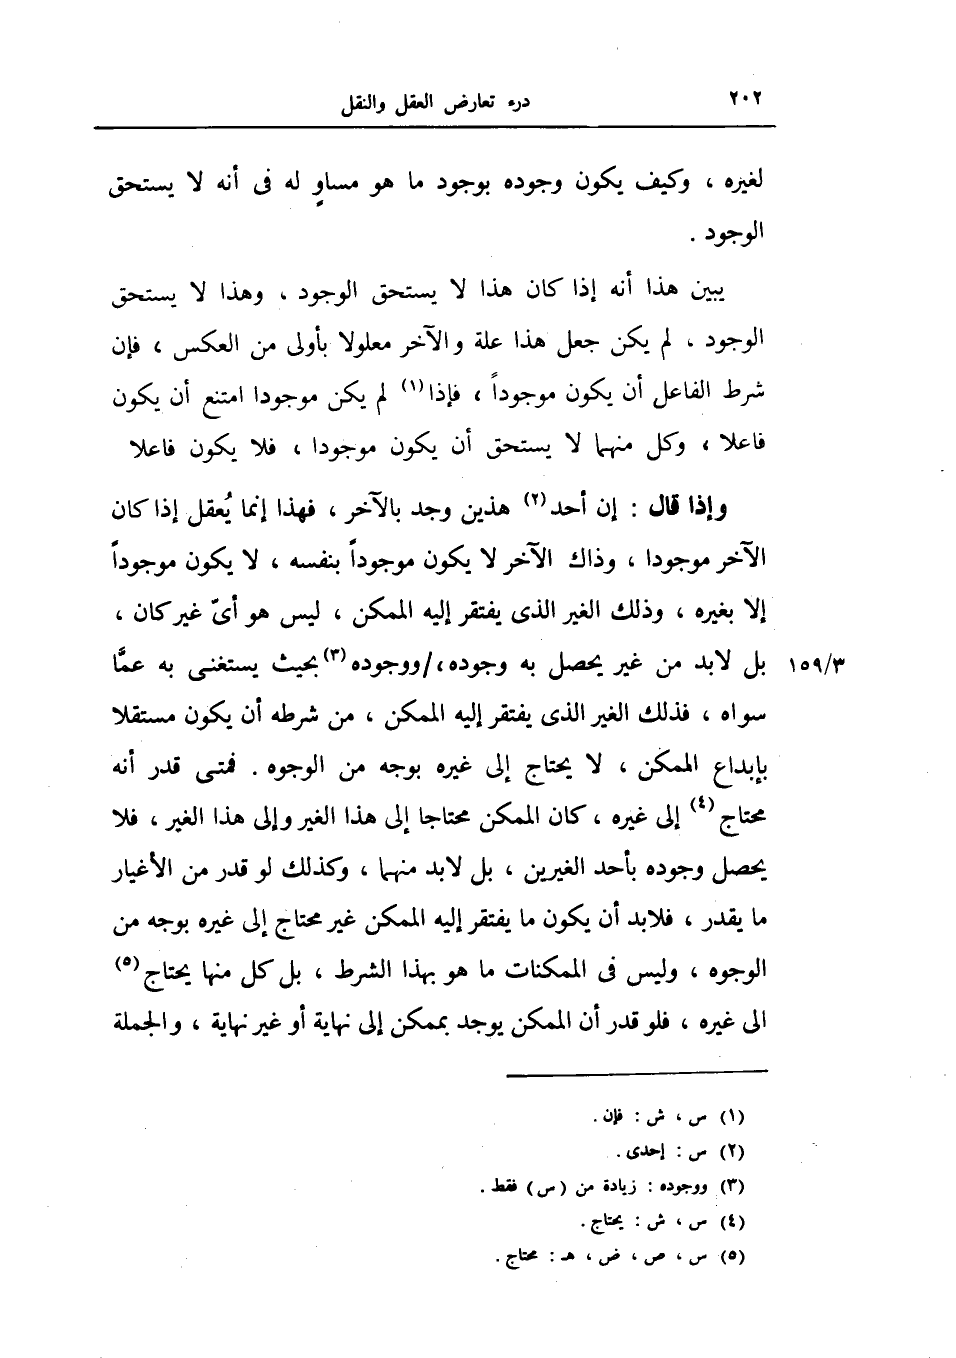 ٢٠٢
درء تعارض العقل والنقل
لغيره ، وكيف يكون وجوده بوجود ما هو مساوٍ له فى أنه لا يستحق
الوجود .
يبين هذا أنه إذا كان هذا لا يستحق الوجود ، وهذا لا يستحق
الوجود ، لم يكن جعل هذا علة والآخر معلولا بأولى من العكس ، فإن
شرط الفاعل أن يكون موجوداً ، فإذا(١) لم يكن موجودا امتنع أن يكون
فاعلا ، وكل منهما لا يستحق أن يكون موجودا ، فلا يكون فاعلا
وإذا قال : إن أحد(٢) هذين وجد بالآخر ، فهذا إنما يُعقل إذا كان
الآخر موجودا ، وذاك الآخر لا يكون موجوداً بنفسه ، لا يكون موجوداً
إلا بغيره ، وذلك الغير الذى يفتقر إليه الممكن ، ليس هو أىّ غير كان ،
بل لابد من غير يحصل به وجوده،/ووجوده(٣) بحيث يستغنى به عمَّا
١٥٩/٣
سواه ، فذلك الغير الذى يفتقر إليه الممكن ، من شرطه أن يكون مستقلا
بإبداع الممكن ، لا يحتاج إلى غيره بوجه من الوجوه . فمتى قدر أنه
محتاج(٤) إلى غيره ، كان الممكن محتاجا إلى هذا الغير وإلى هذا الغير ، فلا
يحصل وجوده بأحد الغيرين ، بل لابد منهما ، وكذلك لو قدر من الأغيار
ما يقدر ، فلابد أن يكون ما يفتقر إليه الممكن غير محتاج إلى غيره بوجه من
الوجوه ، وليس فى الممكنات ما هو بهذا الشرط ، بل كل منها يحتاج(٥)
الى غيره ، فلو قدر أن الممكن يوجد بممكن إلى نهاية أو غير نهاية ، والجملة
(١) س ، ش : فإن .
(٢) س : إحدى .
(٣) ووجوده : زيادة من (س) فقط .
(٤) س ، ش : يحتاج .
(٥) س ، ص ، ض ، هـ : محتاج .